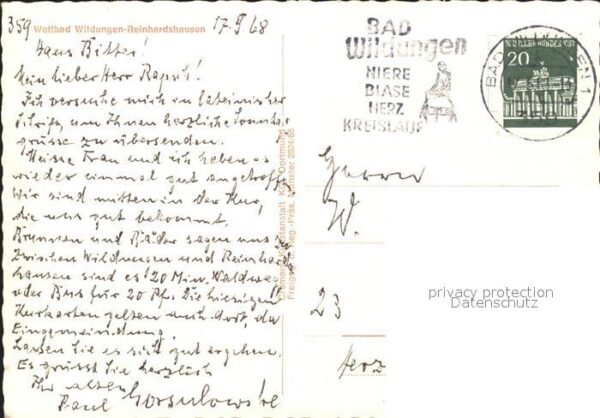 359 Weltbad Wildungen-Reinhardshausen 17. 9 68
Hans Bitter!
Mein lieber Herr Rapsch!
Ich versuche mich in lateinischer
Schrift, um Ihnen herzliche Sonntags
grüsse zu übersenden.
Meine Frau und ich haben es
wieder einmal gut angetroffen
Wir sind mitten in der Kur,
die uns gut bekommt.
Brunnen und Bäder sagen uns zu
Zwischen Wildungen und Reinhards
hausen sind es 20 Min. Waldweg
oder Bus für 20 Pf. Die hiesigen
Kurkarten gelten auch dort, da
Eingemeindung.
Lassen Sie es sich gut ergehen.
Es grüsst Sie herzlich
Ihr alter
Paul
BAD
Wildungen
NIERE
BLASE
HERZ
KREISLAUF
DEUTSCHE BUNDESPOST
20
BAD WILDUNGEN 1
Herrn
W.
23
Herz
privacy protection
Datenschutz